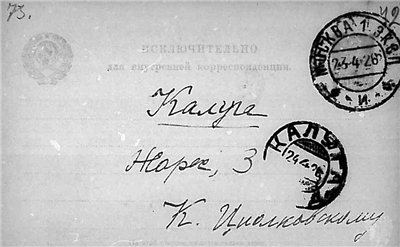 73.
42
МОСКВА 1
23-4-26
ИСКЛЮЧИТЕЛЬНО
для внутренней корреспонденции.
Калуга
КАЛУГА
24.4.26
Жорес, 3
К. Циолковскому